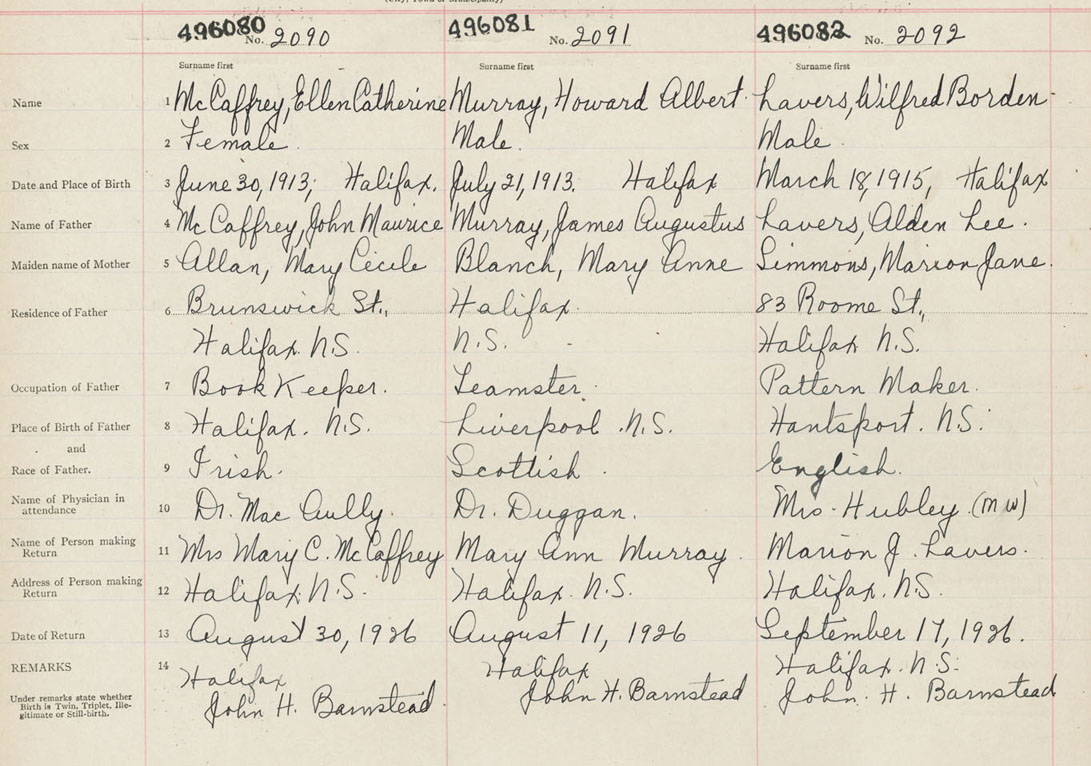 496080 No. 2090 496081 No. 2091 496082 No. 2092
Surname first Surname first Surname first
Name 1 McCaffrey, Ellen Catherine Murray, Howard Albert. Lavers, Wilfred Borden
Sex 2 Female. Male. Male.
Date and Place of Birth 3 June 30, 1913; Halifax. July 21, 1913. Halifax March 18, 1915, Halifax
Name of Father 4 McCaffrey, John Maurice Murray, James Augustus Lavers, Alden Lee.
Maiden name of Mother 5 Allan, Mary Cecile Blanch, Mary Anne Simmons, Marion Jane.
Residence of Father 6 Brunswick St., Halifax. 83 Roome St.,
Halifax. N.S. N.S. Halifax N.S.
Occupation of Father 7 Book Keeper. Teamster. Pattern Maker.
Place of Birth of Father 8 Halifax. N.S. Liverpool. N.S. Hantsport. N.S.
and
Race of Father. 9 Irish. Scottish. English.
Name of Physician in
attendance 10 Dr. Mac Aully. Dr. Duggan. Mrs. Hubley. (MW)
Name of Person making
Return 11 Mrs Mary C. McCaffrey Mary Ann Murray. Marion J. Lavers.
Address of Person making
Return 12 Halifax. N.S. Halifax. N.S. Halifax. N.S.
Date of Return 13 August 30, 1926 August 11, 1926 September 17, 1926.
REMARKS 14 Halifax Halifax Halifax. N.S.
Under remarks state whether
Birth is Twin, Triplet, Ille-
gitimate or Still-birth. John H. Barnstead. John H. Barnstead John. H. Barnstead